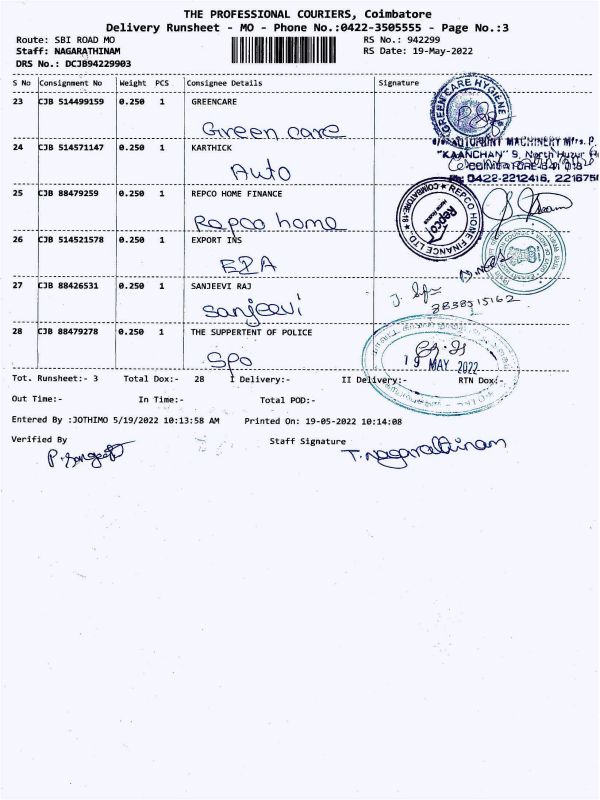 THE PROFESSIONAL COURIERS, Coimbatore
Delivery Runsheet - MO - Phone No.:0422-3505555 - Page No.:3
Route: SBI ROAD MO RS No.: 942299
Staff: NAGARATHINAM RS Date: 19-May-2022
DRS No.: DCJB94229903
S No Consignment No Weight PCS Consignee Details Signature
23 CJB 514499159 0.250 1 GREENCARE
Green care
GREEN CARE HYGIENE
24 CJB 514571147 0.250 1 KARTHICK
Auto
AUTOPRINT MACHINERY Mfrs. P.
"KAANCHAN" 9, North Huzur
COIMBATORE-641 018
Ph: 0422-2212416, 221675
25 CJB 88479259 0.250 1 REPCO HOME FINANCE
Repco home
REPCO HOME FINANCE LTD. COIMBATORE-18
Repco
26 CJB 514521578 0.250 1 EXPORT INS
EIA
27 CJB 88426531 0.250 1 SANJEEVI RAJ
Sanjeevi
9838515162
28 CJB 88479278 0.250 1 THE SUPPERTENT OF POLICE
Spo
19 MAY 2022
Tot. Runsheet:- 3 Total Dox:- 28 I Delivery:- II Delivery:- RTN Dox:-
Out Time:- In Time:- Total POD:-
Entered By :JOTHIMO 5/19/2022 10:13:58 AM Printed On: 19-05-2022 10:14:08
Verified By Staff Signature
P. Sangeeth T. Nagarathinam